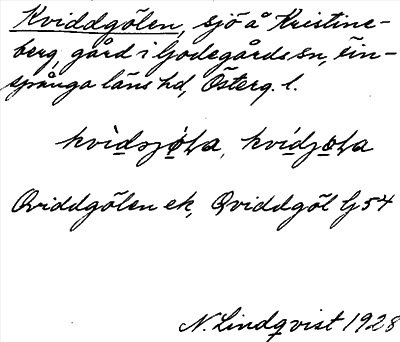 Kviddgölen, sjö å Kristine-
berg, gård i Godegårds sn, Fin-
spånga läns hd, Österg. l.
kvìdsjø̀ɫa, kvìdjø̀ɫa
Qviddgölen ek, Qviddgöl G 54
N. Lindqvist 1928